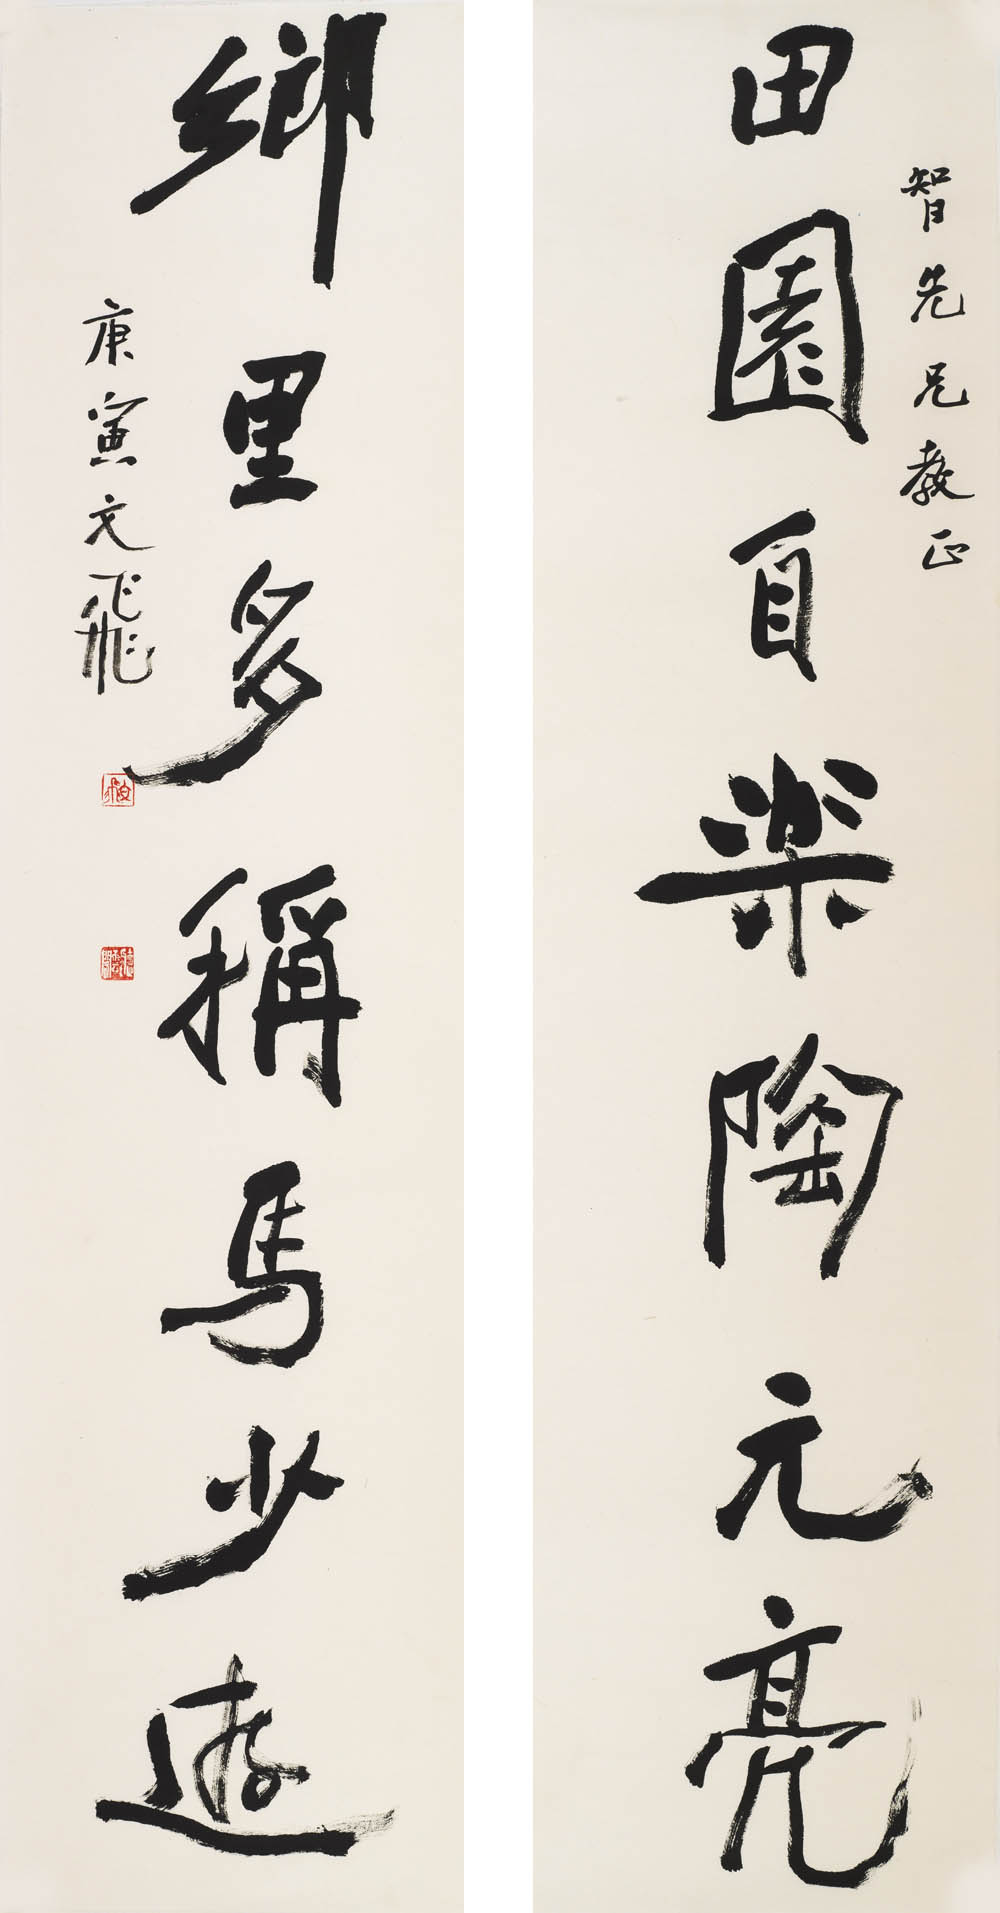 智先兄教正
田園自樂陶元亮
鄉里多稱馬少遊
庚寅文飛